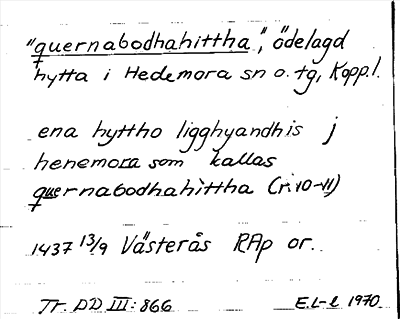 "quernabodhahittha", ödelagd
hytta i Hedemora sn o. tg, Kopp.l.
ena hyttho ligghyandhis j
henemora som kallas
quernabodhahittha (r. 10-11)
1437 13/9 Västerås RAp or.
Tr. DD III: 866 E.L-l 1970